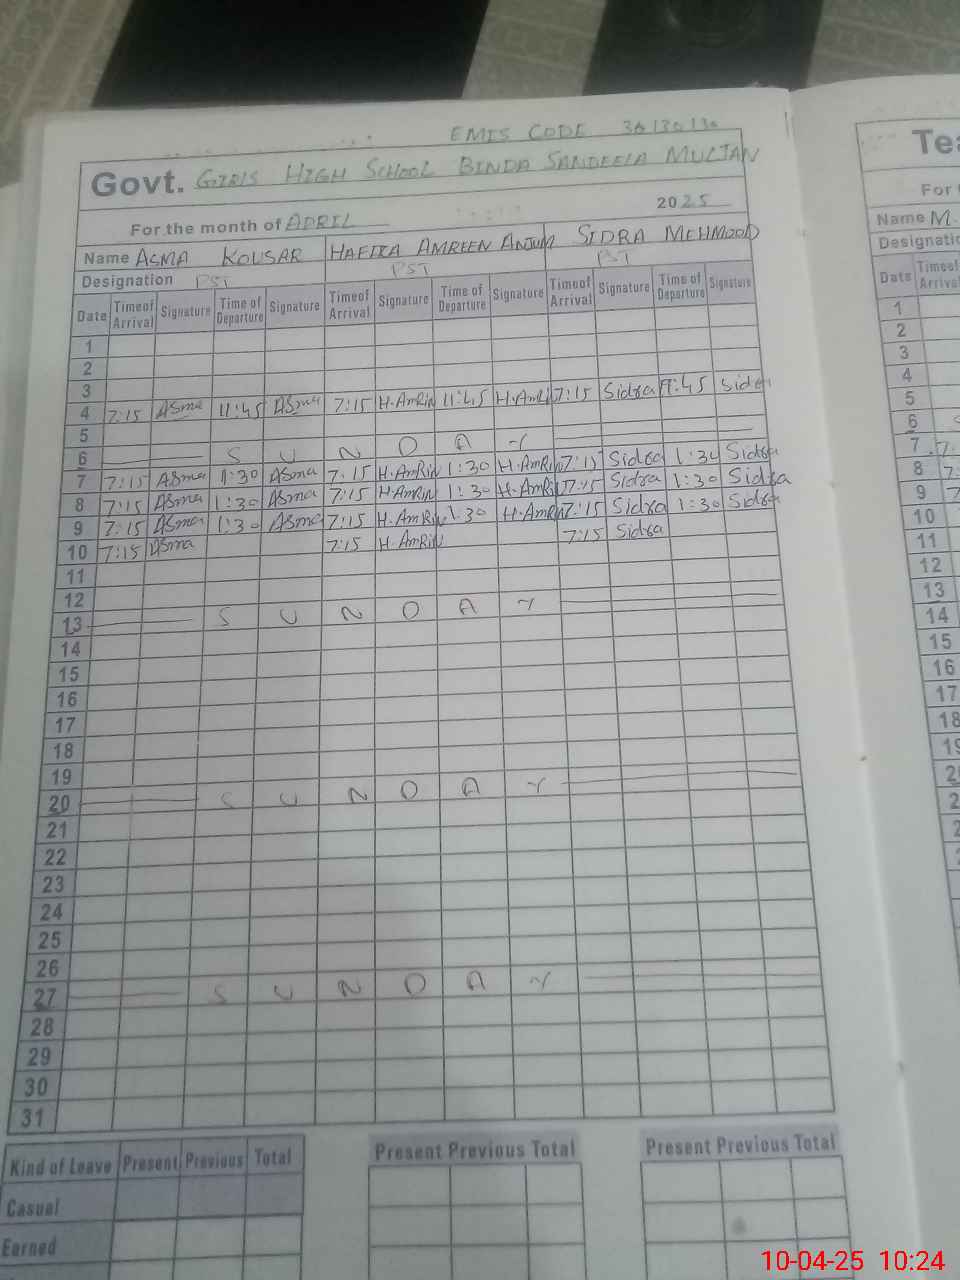 EMIS CODE
Govt. GIRLS HIGH SCHOOL BINDA SANDEELA MULTAN
For the month of APRIL 2025
Name ASMA KOUSAR HAFIZA AMREEN ANJUM SIDRA MEHMOOD
Designation PST PST PST
Date Time of Arrival Signature Time of Departure Signature Time of Arrival Signature Time of Departure Signature Time of Arrival Signature Time of Departure Signature
1
2
3
4 7:15 Asma 11:45 Asma 7:15 H.AmRin 11:45 H.AmRi 7:15 Sidra 11:45 Sidra
5
6 S U N D A Y
7 7:15 Asma 1:30 Asma 7:15 H.AmRin 1:30 H.AmRin 7:15 Sidra 1:30 Sidra
8 7:15 Asma 1:30 Asma 7:15 H.AmRin 1:30 H.AmRin 7:15 Sidra 1:30 Sidra
9 7:15 Asma 1:30 Asma 7:15 H.AmRin 1:30 H.AmRin 7:15 Sidra 1:30 Sidra
10 7:15 Asma 7:15 H.AmRin 7:15 Sidra
11
12
13 S U N D A Y
14
15
16
17
18
19
20 S U N D A Y
21
22
23
24
25
26
27 S U N D A Y
28
29
30
31
Kind of Leave Present Previous Total Present Previous Total Present Previous Total
Casual
Earned
Name M.
Date Time of
1
2
3
4
5
6
7
8
9
10
11
12
13
14
15
16
17
18
10-04-25 10:24